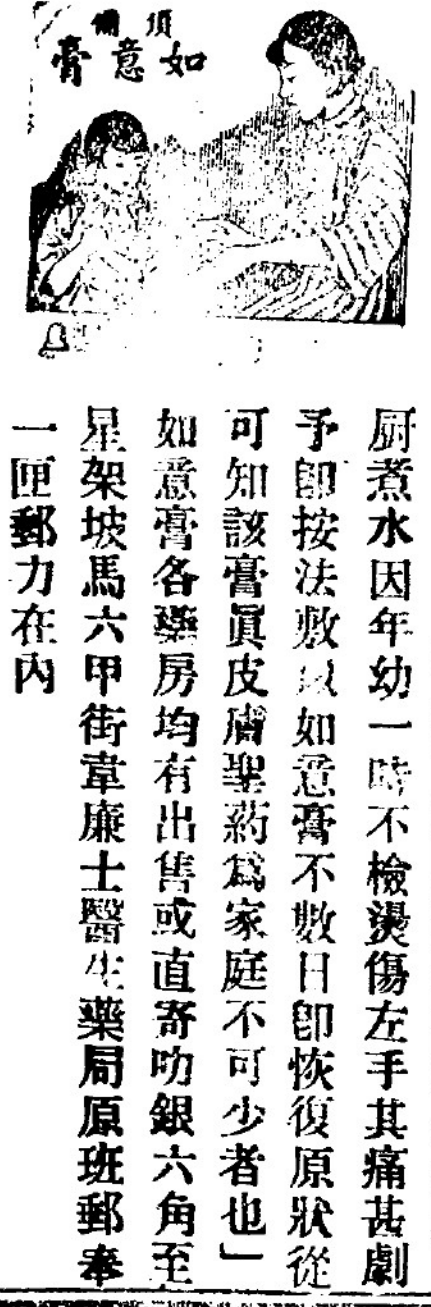 如意膏
厨煮水因年幼一時不檢燙傷左手其痛甚劇
予卽按法敷以如意膏不數日卽恢復原狀從
可知該膏眞皮膚聖葯爲家庭不可少者也」
如意膏各藥房均有出售或直寄叻銀六角至
星架坡馬六甲街韋廉士醫生藥局原班郵奉
一匣郵力在內